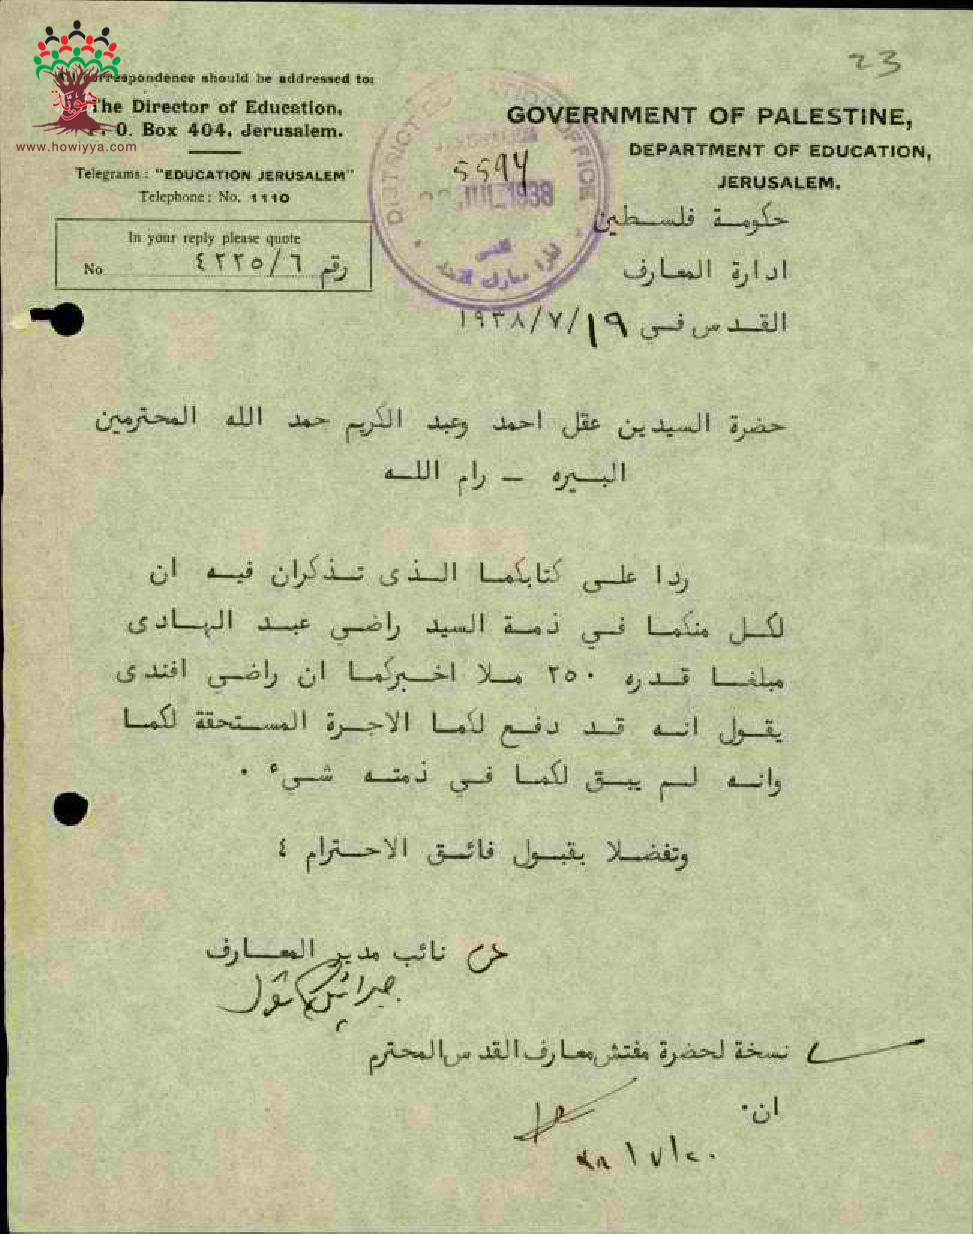 23
All correspondence should be addressed to:
The Director of Education,
P. O. Box 404, Jerusalem.
www.howiyya.com
Telegrams: "EDUCATION JERUSALEM"
Telephone: No. 1110
In your reply please quote
No ٤٢٢٥/٦ رقم
DISTRICT EDUCATION OFFICE
JERUSALEM
5594
JUL 1938
القدس
GOVERNMENT OF PALESTINE,
DEPARTMENT OF EDUCATION,
JERUSALEM.
حكومة فلسطين
ادارة المعارف
القدس في ١٩/٧/١٩٣٨
حضرة السيدين عقل احمد وعبد الكريم حمد الله المحترمين
البيره - رام الله
ردا على كتابكما الذى تذكران فيه ان
لكل منكما في ذمة السيد راضي عبد الهادى
مبلغا قدره ٢٥٠ ملا اخبركما ان راضي افندى
يقول انه قد دفع لكما الاجرة المستحقة لكما
وانه لم يبق لكما في ذمته شيء .
وتفضلا بقبول فائق الاحترام ٤
عن نائب مدير المعارف
جبرائيل كاتول
نسخة لحضرة مفتش معارف القدس المحترم
ان.
٢٠/٧/٣٨